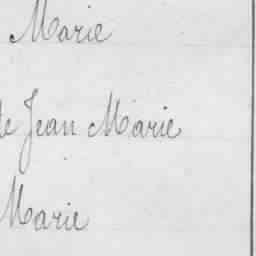 Marie
de Jean Marie
Marie